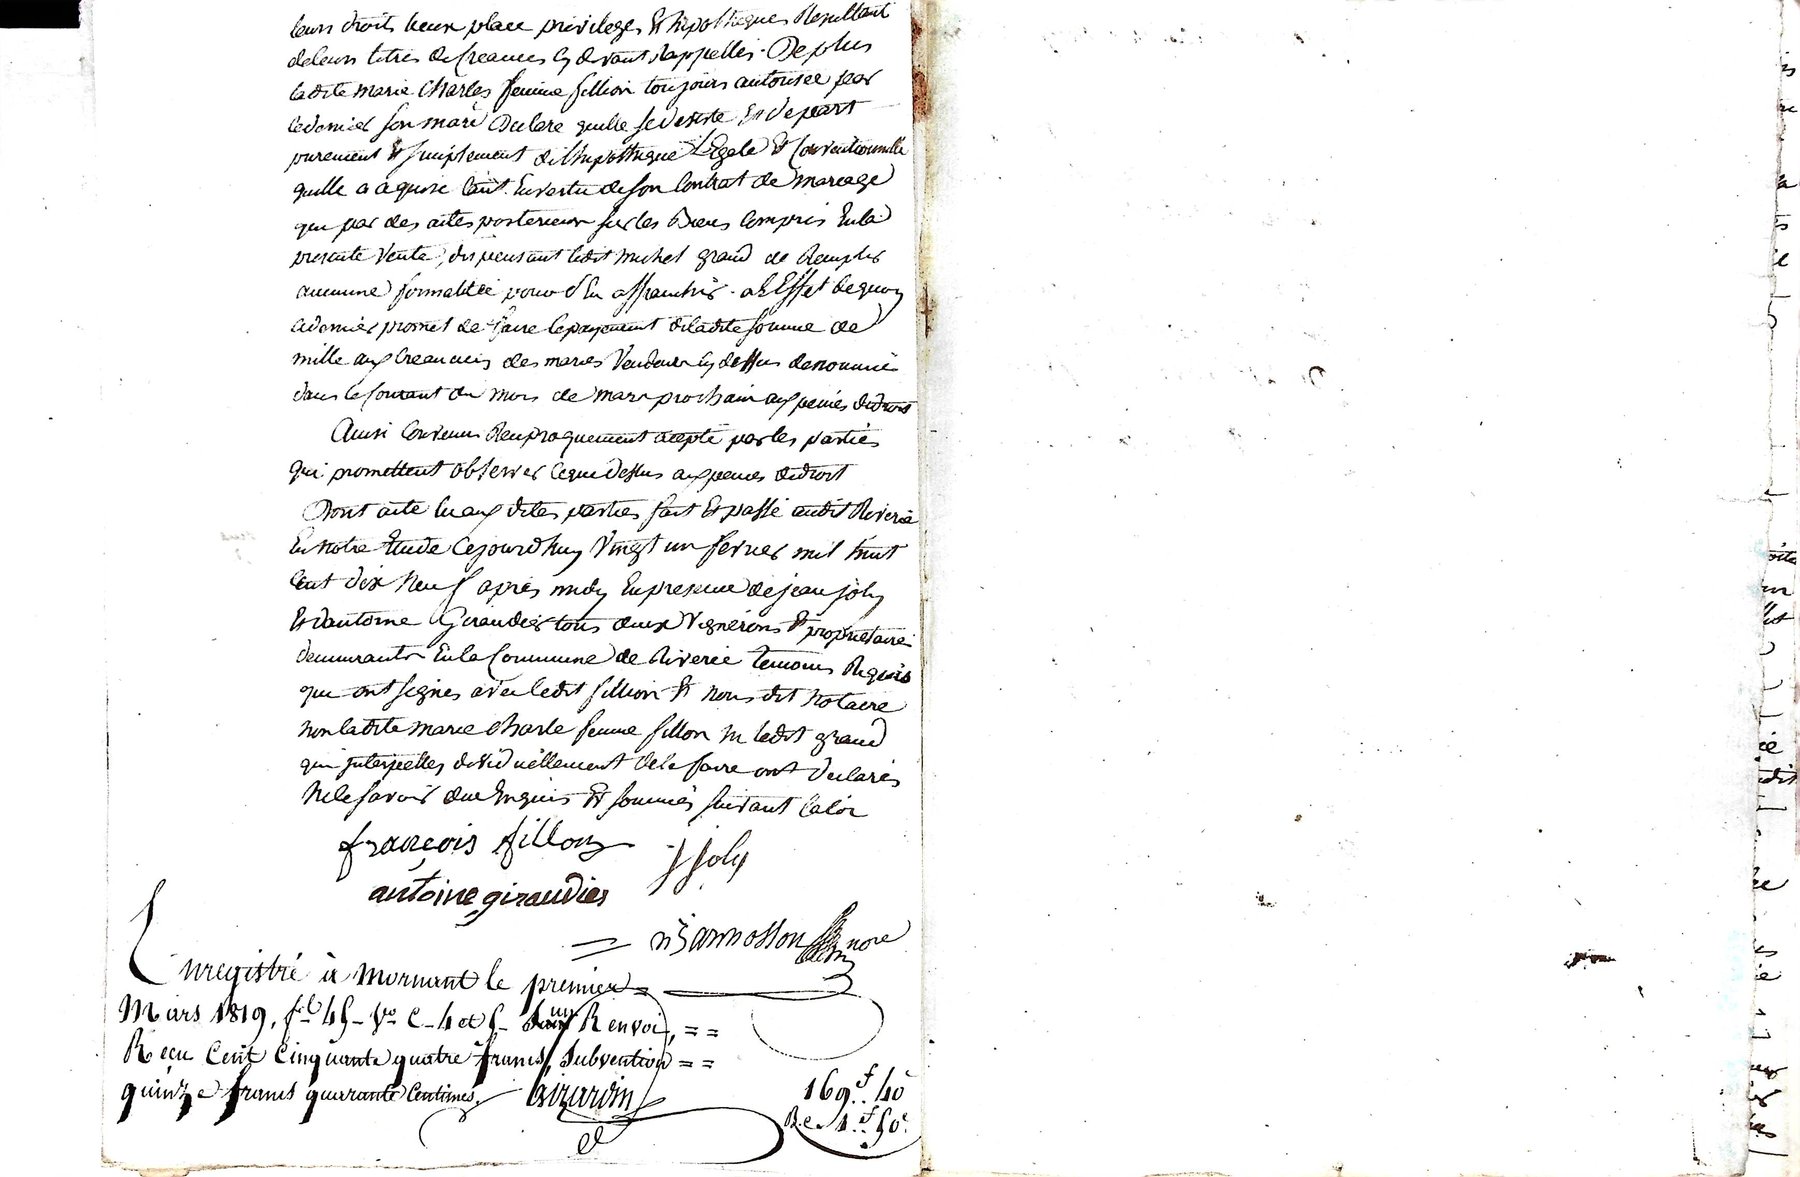 leurs droits lieux place privileges et hipotheques Resultant
deleurs titres de Creances cy devant Rappellés. De plus
ladite marie Charles femme fillion toujours autorisée par
cedernier son mari Declare quelle sedesiste et depart
purement et simplement del'hipotheque Légale et Conventionnelle
quelle a aquise tant Envertu deson Contrat de mariage
que par des actes posterieur sur les Biens compris Enla
presente Vente, dispensant ledit michel grand de Remplir
aucunne formalitée pour s'En affranchir. a l'Effet dequoy
cedernier promet de faire lepayement deladite somme de
mille aux Creanciers des mariés Vendeur cy dessus denommés
dans lecourant du mois de mars prochain aux peines dedroit
Ainsi Convenu Reciproquement acepté par les parties
Qui promettent observer cequedessus aux peines dedroit
Dont acte lu aux dites parties fait et passé audit Riverie
En notre Etude Cejourd'huy Vingt un fevrier mil huit
Cent dix neuf après midy En presence de jean joly
Et d'antoine Giraudier tous deux Vignerons et propriétaire
demeurants Enla Commune de Riverie temoins Requis
qui ont signés avec ledit fillion et nous dit notaire
non ladite marie Charle femme fillon ni ledit grand
qui interpellés dividuellement dele faire ont declarés
nele savoir due Enquis et sommés suivant laloi
françois fillon
J Joly
antoine giraudier
Jannosson nore
Enregistré à Mornant le premier
Mars 1819, fol 45 Vo C 4 et 5 Renvoi, ==
Reçu Cent Cinquante quatre francs, Subvention ==
quinze francs quarante Centimes. Girardin
169f. 40
1f. 50c